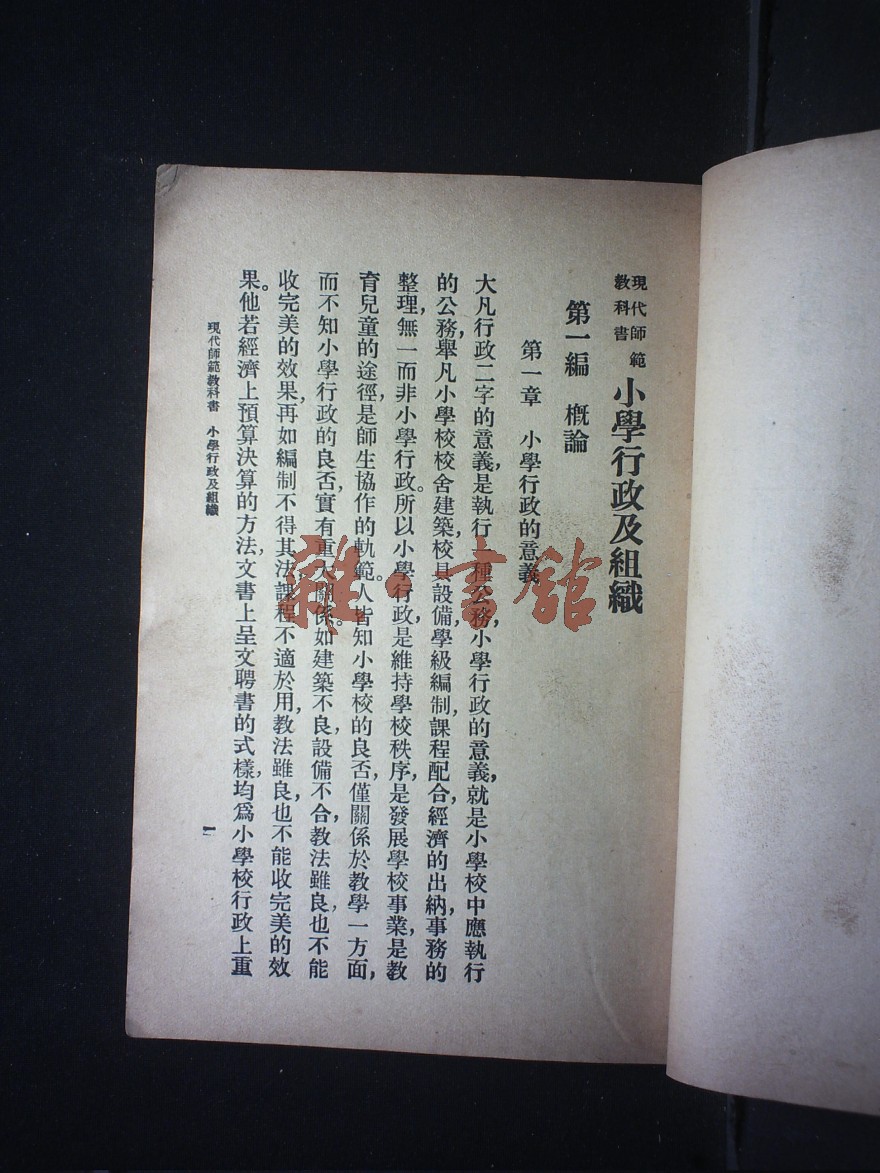 現代師範
教科書
小學行政及組織
第一編　概論
第一章　小學行政的意義
大凡行政二字的意義，是執行一種公務，小學行政的意義，就是小學校中應執行
的公務，舉凡小學校校舍建築，校具設備，學級編制，課程配合，經濟的出納，事務的
整理，無一而非小學行政。所以小學行政，是維持學校秩序，是發展學校事業，是教
育兒童的途徑，是師生協作的軌範。人皆知小學校的良否，僅關係於教學一方面，
而不知小學行政的良否，實有重大關係。如建築不良，設備不合，教法雖良，也不能
收完美的效果，再如編制不得其法，課程不適於用，教法雖良，也不能收完美的效
果。他若經濟上預算決算的方法，文書上呈文聘書的式樣，均爲小學校行政上重
現代師範教科書　小學行政及組織
一
雜·書館